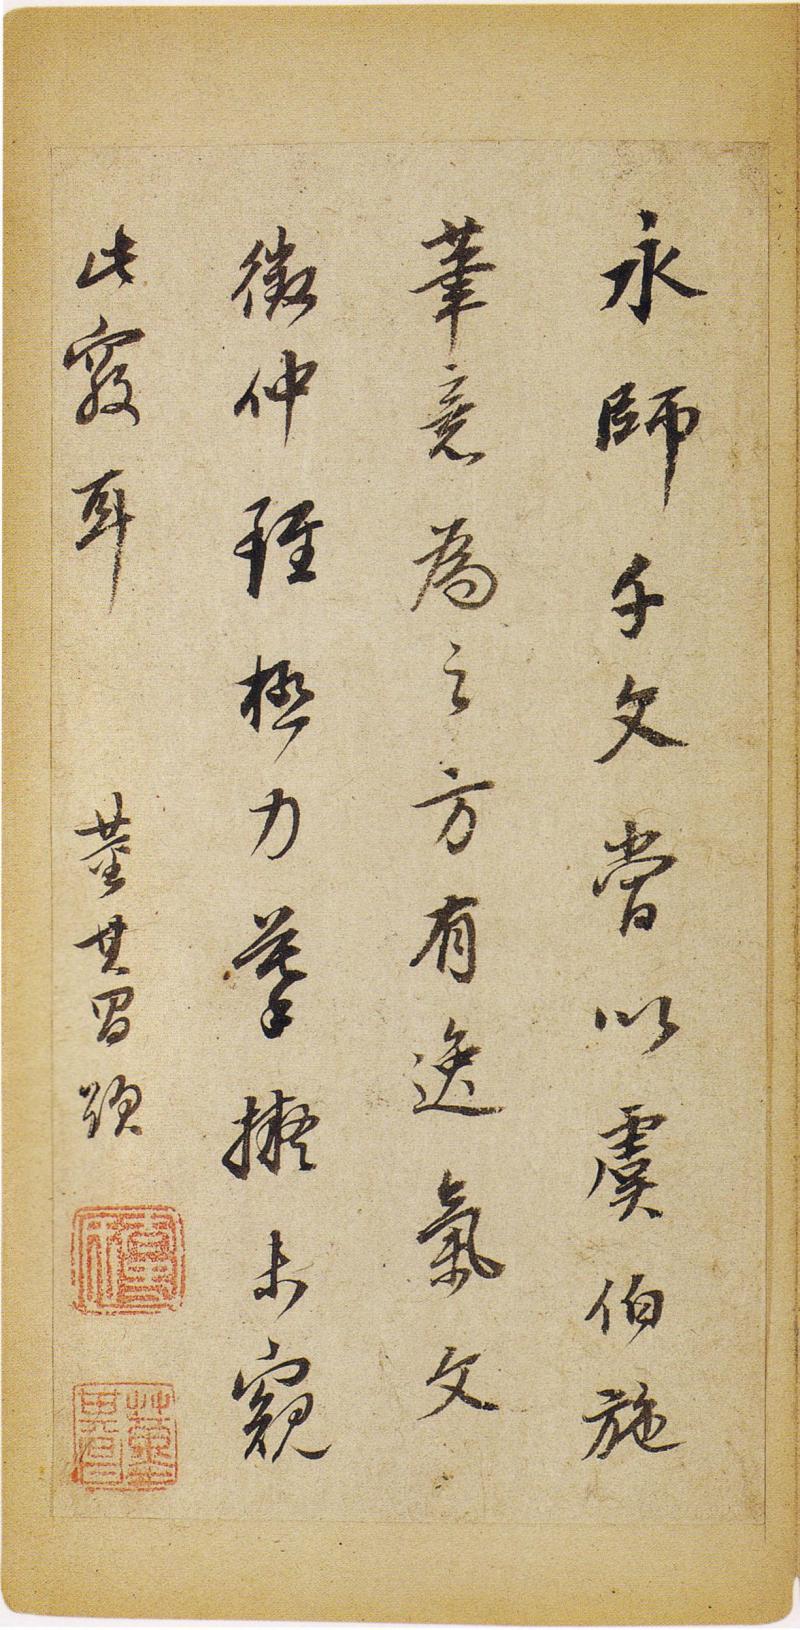 永師千文嘗以虞伯施
筆意為之方有逸氣文
徵仲雖極力摹擬未窺
此竅耳　董其昌題
董其昌